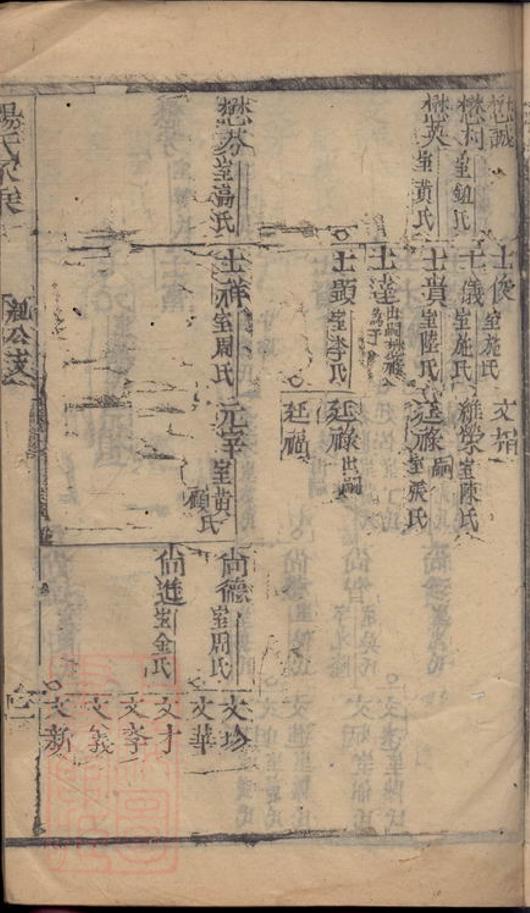 懋誠
懋柯 室鈕氏
懋英 室黄氏
懋芬 室湯氏
士俊 室施氏
士儀 室施氏
士貴 室陸氏
士達 出嗣
士顯 室李氏
士祥 室周氏
文
維榮 室陳氏
廷祿 嗣 室張氏
廷祿 出嗣
廷福
元宰 室黄氏 顧氏
尚德 室周氏
尚進 室金氏
文珍
文華
文才
文孝
文義
文新
楊氏
公支